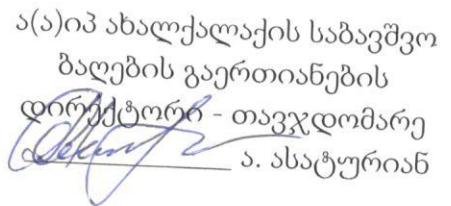 ა(ა)იპ ახალქალაქის საბავშვო
ბაღების გაერთიანების
დირექტორი - თავჯდომარე
ა. ასატურიან